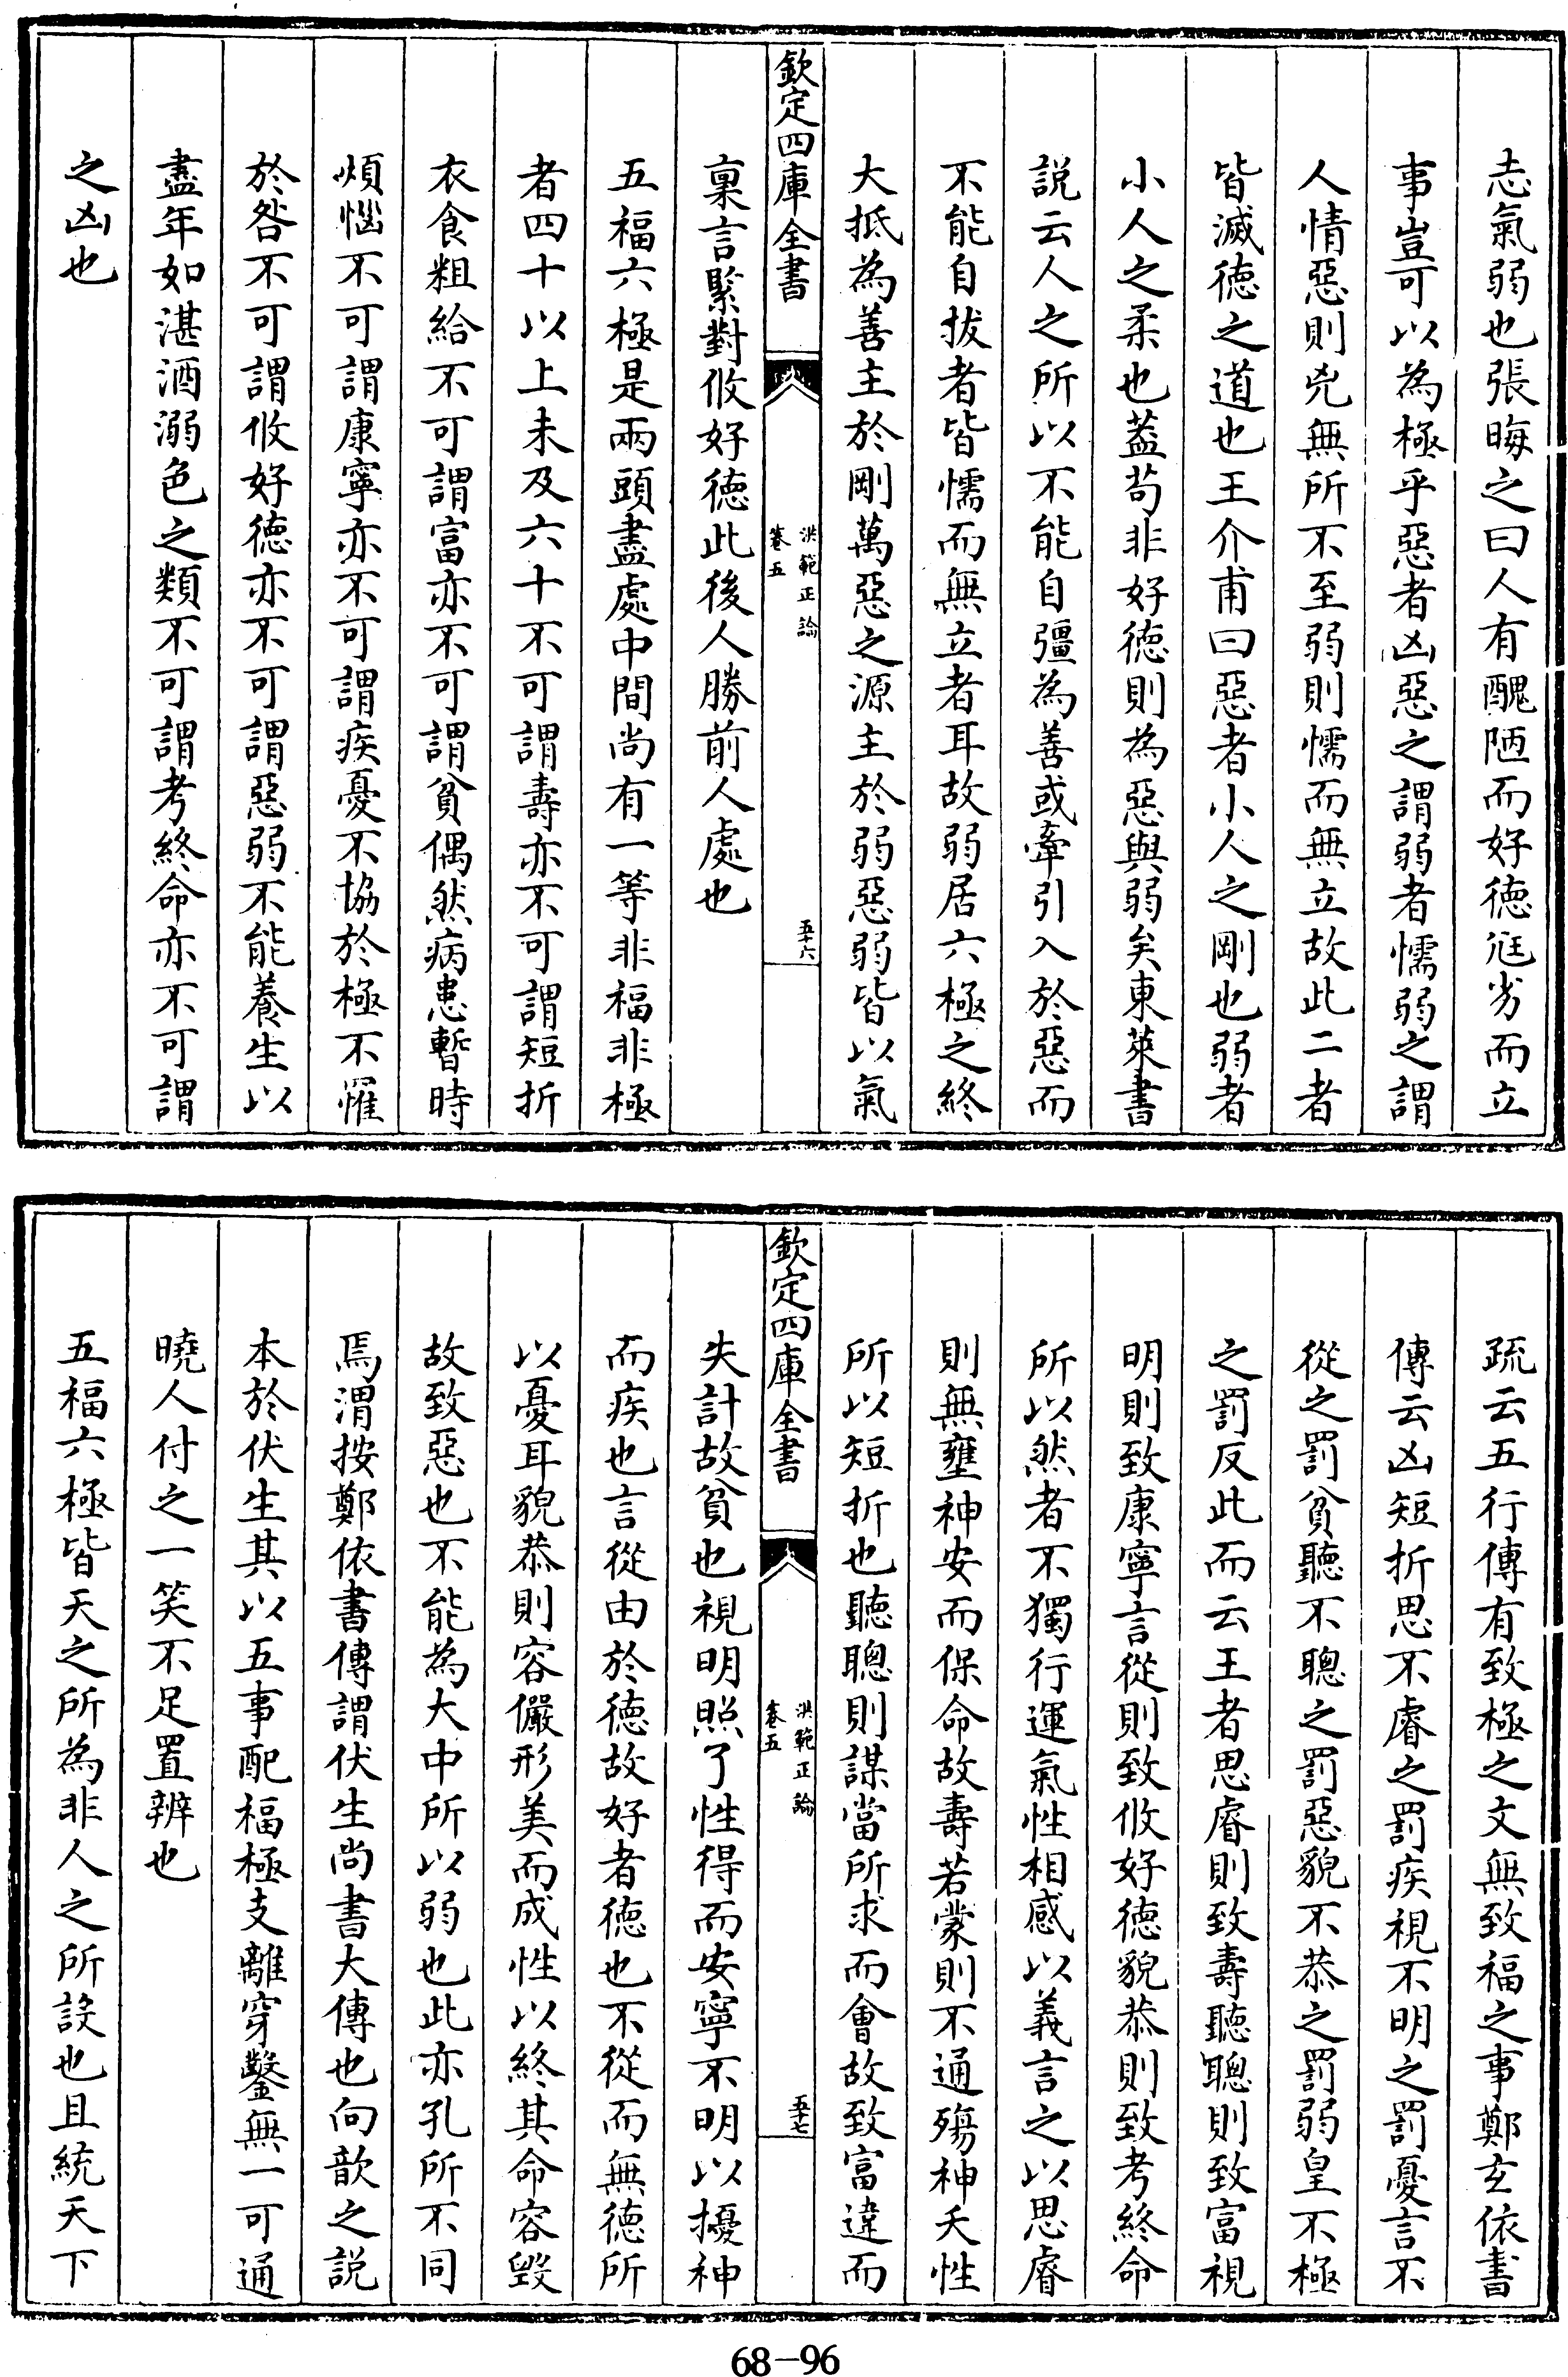 志氣弱也張晦之曰人有醜陋而好徳尫劣而立
事豈可以為極乎惡者凶惡之謂弱者懦弱之謂
人情惡則兇無所不至弱則懦而無立故此二者
皆滅徳之道也王介甫曰惡者小人之剛也弱者
小人之柔也葢茍非好徳則為惡與弱矣東萊書
説云人之所以不能自彊為善或牽引入於惡而
不能自拔者皆懦而無立者耳故弱居六極之終
大抵為善主於剛萬惡之源主於弱惡弱皆以氣
欽定四庫全書
洪範正論
卷五
五十六
稟言緊對攸好徳此後人勝前人處也
五福六極是兩頭盡處中間尚有一等非福非極
者四十以上未及六十不可謂壽亦不可謂短折
衣食粗給不可謂富亦不可謂貧偶然病患暫時
煩惱不可謂康寧亦不可謂疾憂不協於極不罹
於咎不可謂攸好徳亦不可謂惡弱不能養生以
盡年如湛酒溺色之類不可謂考終命亦不可謂
之凶也
疏云五行傳有致極之文無致福之事鄭玄依書
傳云凶短折思不睿之罰疾視不明之罰憂言不
從之罰貧聽不聰之罰惡貌不恭之罰弱皇不極
之罰反此而云王者思睿則致壽聽聰則致富視
明則致康寧言從則致攸好徳貌恭則致考終命
所以然者不獨行運氣性相感以義言之以思睿
則無壅神安而保命故壽若蒙則不通殤神夭性
所以短折也聽聰則謀當所求而會故致富違而
欽定四庫全書
洪範正論
卷五
五十七
失計故貧也視明照了性得而安寧不明以擾神
而疾也言從由於徳故好者徳也不從而無徳所
以憂耳貌恭則容儼形美而成性以終其命容毀
故致惡也不能為大中所以弱也此亦孔所不同
焉渭按鄭依書傳謂伏生尚書大傳也向歆之説
本於伏生其以五事配福極支離穿鑿無一可通
曉人付之一笑不足置辨也
五福六極皆天之所為非人之所設也且統天下
68-96